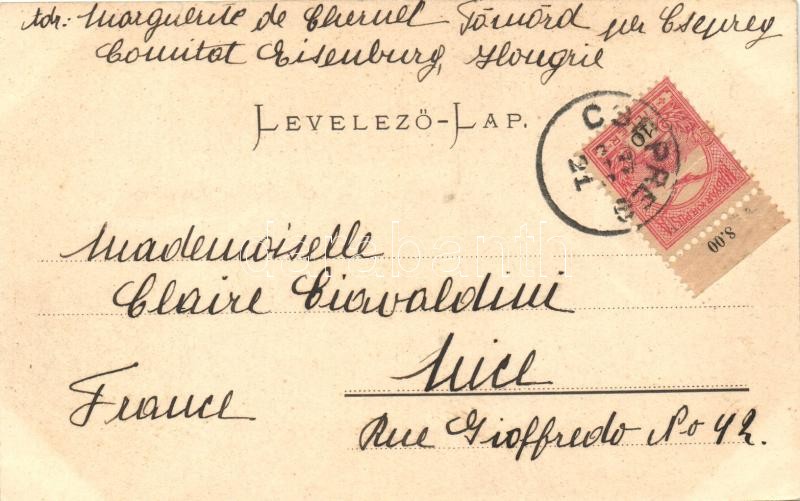 Adr: Marguerite de Chernel Tömörd per Csepreg
Comitat Eisenburg, Hongrie
LEVELEZŐ-LAP.
CSEPREG
10
21
8.00
Mademoiselle
Claire Ciavaldini
Nice
France
Rue Gioffredo No 42.
darabanth